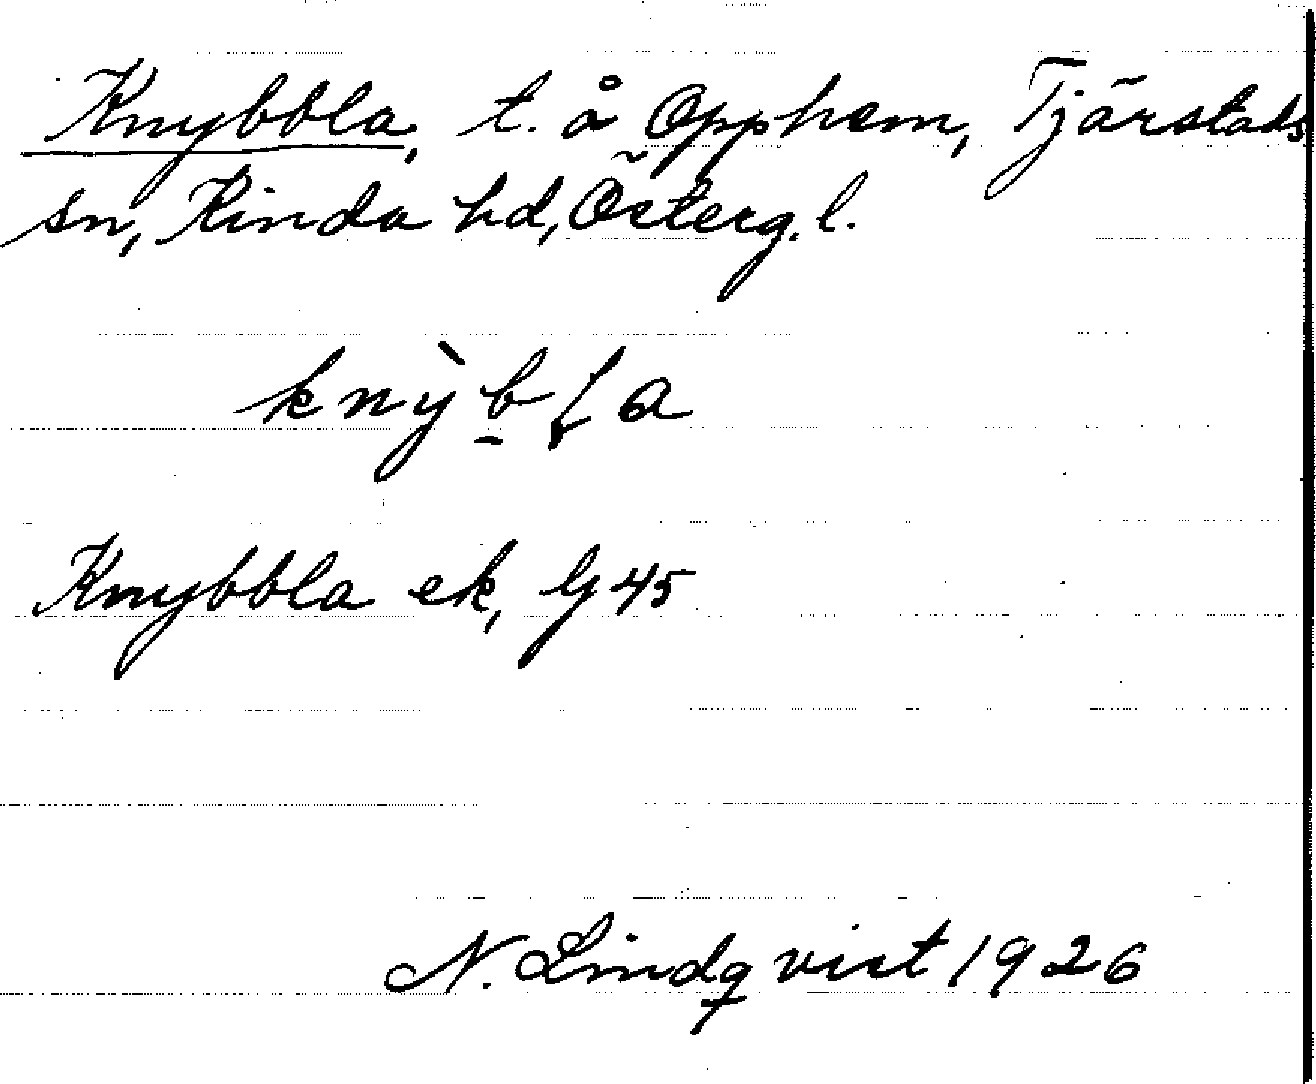 Knybbla, t. å Opphem, Tjärstads
sn, Kinda hd, Österg. l.
knỳb̠ɫa
Knybbla ek, Gj 45
N. Lindqvist 1926